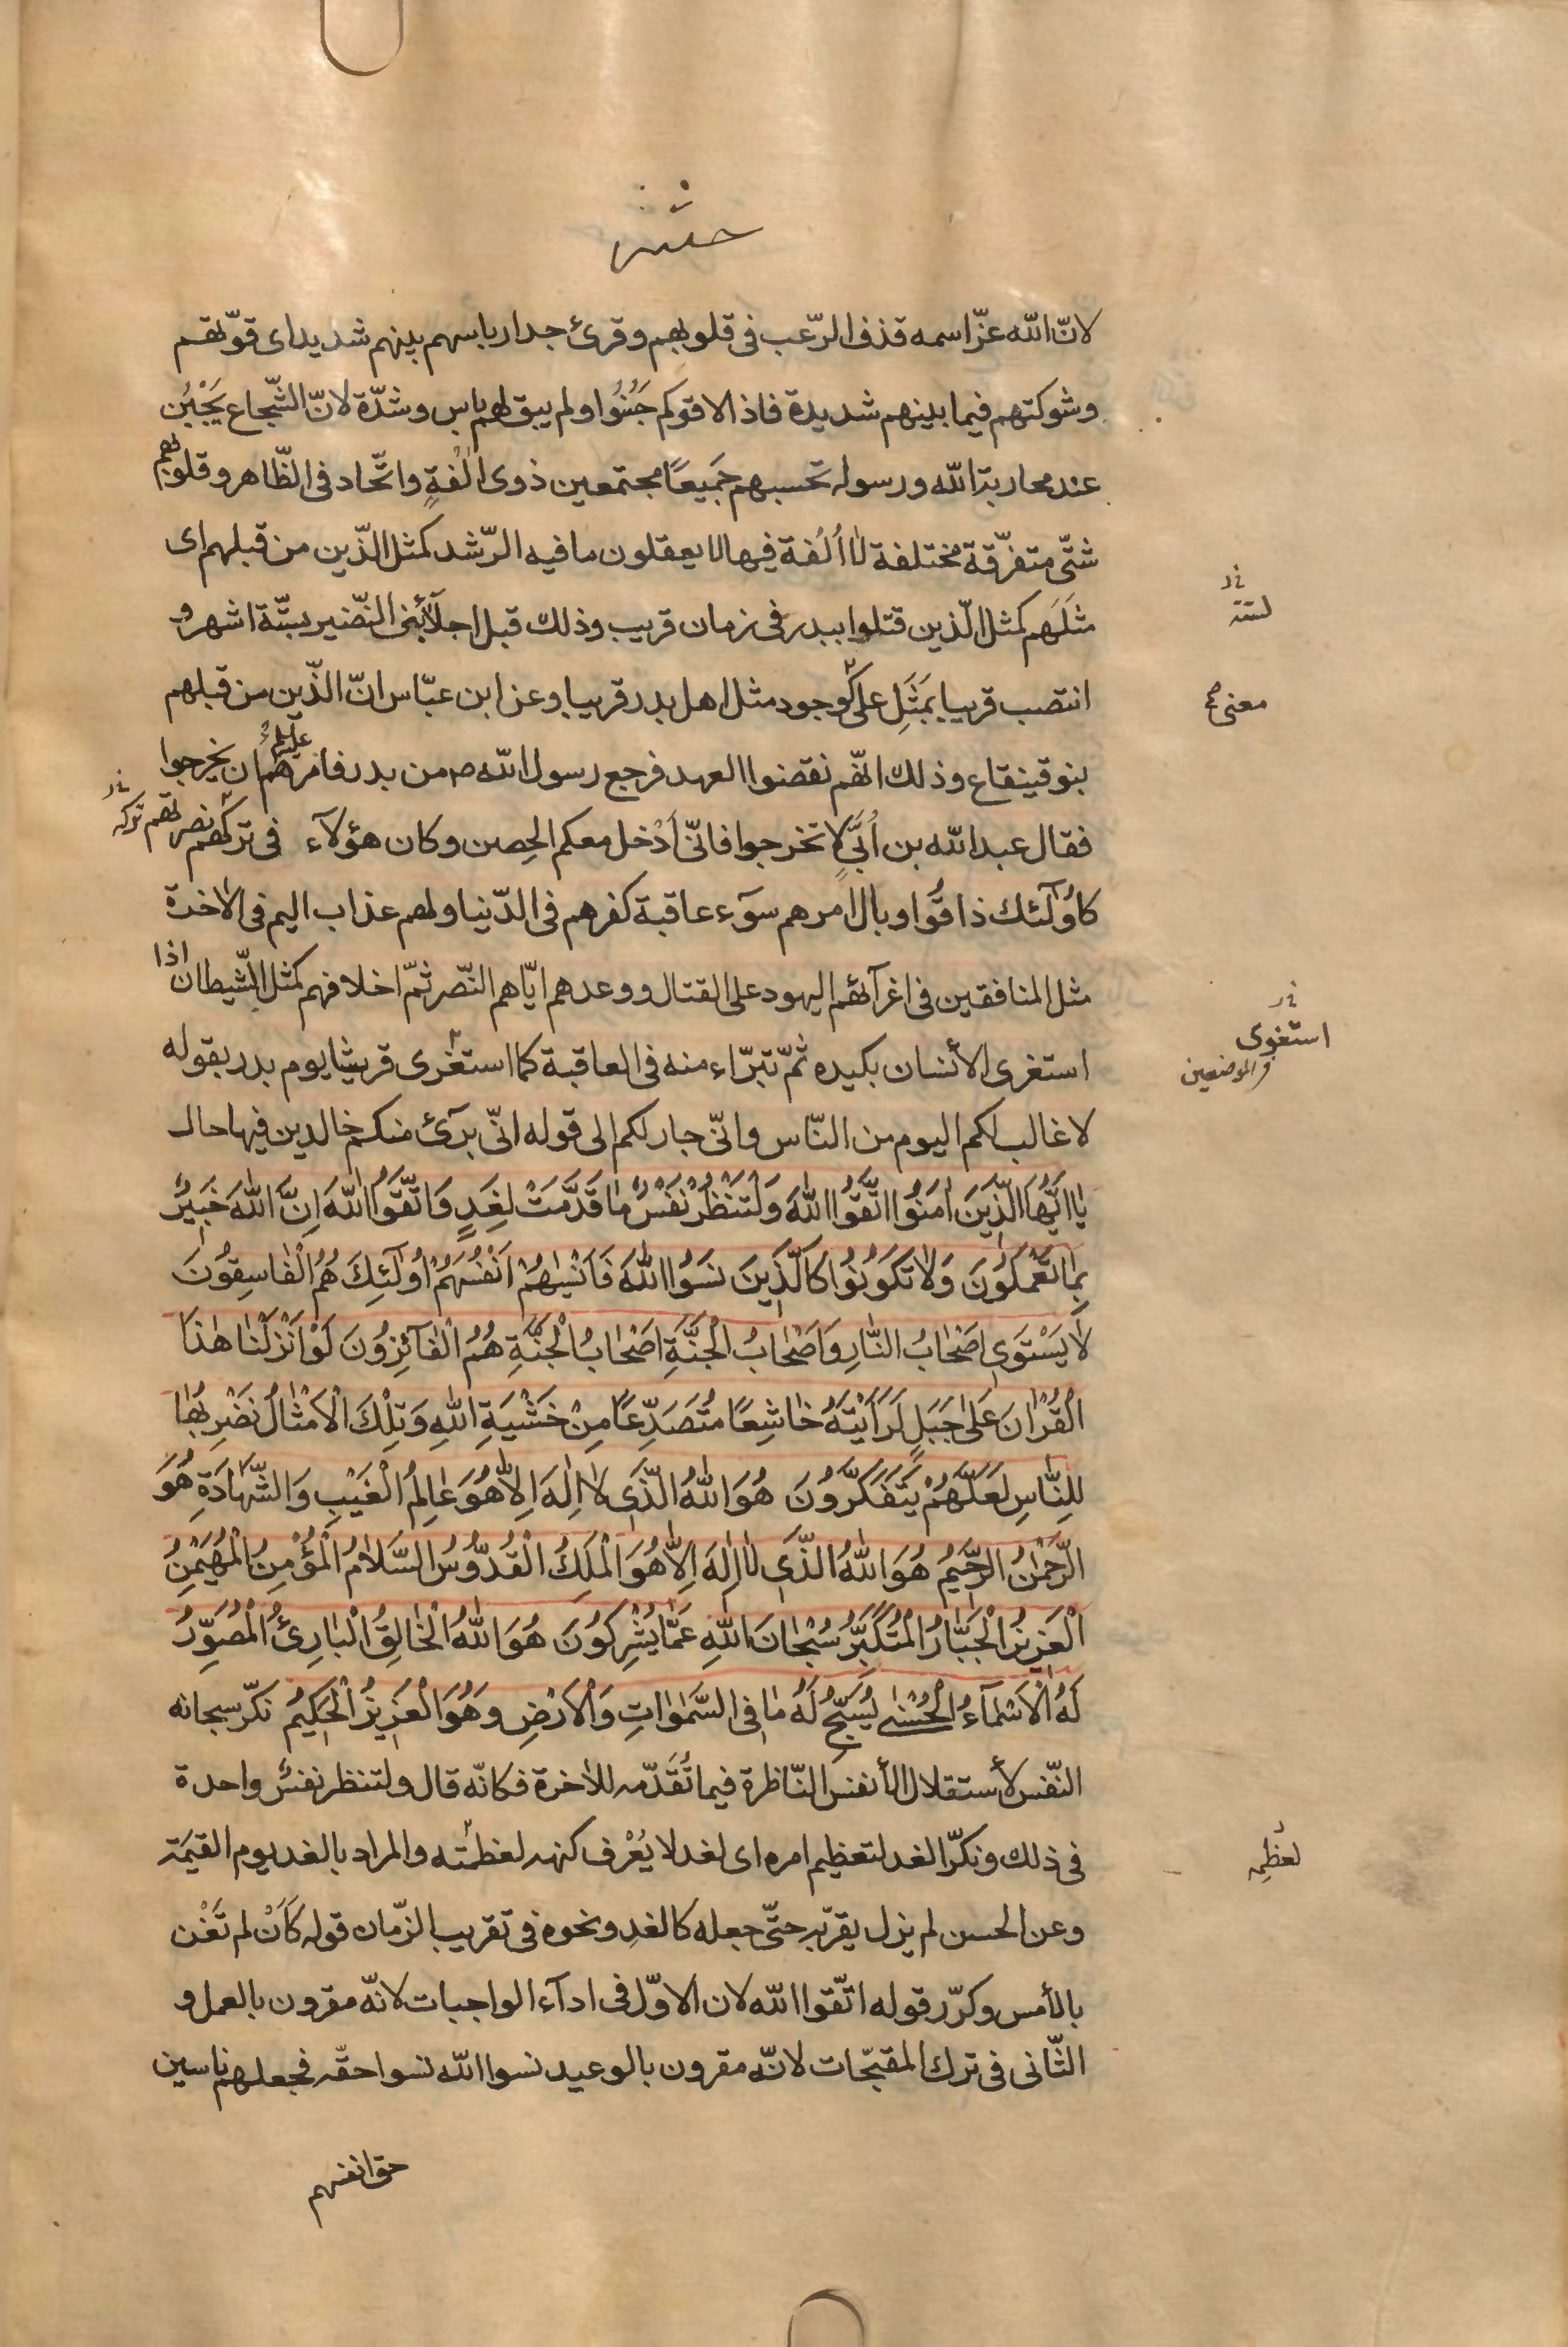 حشر
لانّ الله عزّ اسمه قذف الرّعب فى قلوبهم وقرئ جدار باسهم بينهم شديد اى قوّتهم
وشوكتهم فيما بينهم شديدة فاذا لاقوكم جَبُنُوا ولم يبق لهم باس وشدّة لانّ الشّجاع يَجْبُن
عند محاربة الله ورسوله تحسبهم جَميعًا مجتمعين ذوى اُلْفةٍ واتّحاد فى الظّاهر وقلوبهم
شتّى متفرّقة مختلفة لا اُلْفة فيها لا يعقلون ما فيه الرّشد كمثل الّذين من قبلهم اى
مثَلَهم كمثل الّذين قتلوا ببدر فى زمان قريب وذلك قبل اجلآء بنى النّضير بستّة اشهر و
لستة
انتصب قريبا بمَثَلِ على كوجود مثل اهل بدر قريبا وعن ابن عبّاس انّ الّذين من قبلهم
معنى صح
بنو قينقاع وذلك انّهم نقضوا العهد فرجع رسول الله ص من بدر فامرهم ان يخرجوا
فقال عبد الله بن اُبَىٍّ لا تخرجوا فانّى اَدْخل معكم الحِصن وكان هؤلآء فى تركهم نصرتهم
تركه
كاُولٰٓئك ذاقُوا وبال امرهم سوٓء عاقبة كفرهم فى الدّنيا ولهم عذاب اليم فى الاخرة
مثل المنافقين فى اغرآئهم اليهود على القتال ووعدهم ايّاهم النّصر ثمّ اخلافهم كمثل الشّيطان اذا
استغرى الأنسان بكيده ثمّ تبرّاء منه فى العاقبة كما استغرى قريشا يوم بدر بقوله
استغوى
فى الموضعين
لا غالب لكم اليوم من النّاس وانّى جار لكم الى قوله انّى برٓئ منكم خالدين فيها حال
يٰا اَيُّهَا الَّذينَ اٰمَنُوا اتَّقُوا اللهَ وَلْتَنْظُرْ نَفْسٌ مٰا قَدَّمَتْ لِغَدٍ وَاتَّقُوا اللهَ اِنَّ اللهَ خَبيرٌ
بِمٰا تَعْمَلُونَ وَلٰا تَكُونُوا كَالَّذينَ نَسُوا اللهَ فَاَنْسٰيهُمْ اَنْفُسَهُمْ اُولٰٓئِكَ هُمُ الْفٰاسِقُونَ
لٰا يَسْتَوى اَصْحٰابُ النّٰارِ وَاَصْحٰابُ الْجَنَّةِ اَصْحٰابُ الْجَنَّةِ هُمُ الْفٰآئِزُونَ لَوْ اَنْزَلْنٰا هٰذَا
الْقُرْاٰنَ عَلىٰ جَبَلٍ لَرَاَيْتَهُ خٰاشِعًا مُتَصَدِّعًا مِنْ خَشْيَةِ اللهِ وَتِلْكَ الْاَمْثٰالُ نَضْرِبُهٰا
لِلنّٰاسِ لَعَلَّهُمْ يَتَفَكَّرُونَ هُوَ اللهُ الَّذى لٰا اِلٰهَ اِلّٰا هُوَ عٰالِمُ الْغَيْبِ وَالشَّهٰادَةِ هُوَ
الرَّحْمٰنُ الرَّحيمُ هُوَ اللهُ الَّذى لٰا اِلٰهَ اِلّٰا هُوَ الْمَلِكُ الْقُدُّوسُ السَّلٰامُ الْمُؤْمِنُ الْمُهَيْمِنُ
الْعَزيزُ الْجَبّٰارُ الْمُتَكَبِّرُ سُبْحٰانَ اللهِ عَمّٰا يُشْرِكُونَ هُوَ اللهُ الْخٰالِقُ الْبٰارِئُ الْمُصَوِّرُ
لَهُ الْاَسْمٰآءُ الْحُسْنىٰ يُسَبِّحُ لَهُ مٰا فى السَّمٰوٰاتِ وَالْاَرْضِ وَهُوَ الْعَزيزُ الْحَكيمُ نكّر سبحانه
النّفس لأستقلال الأنفس النّاظرة فيما تُقدّمه للاٰخرة فكانّه قال ولتنظر نفسٌ واحدة
فى ذلك ونكّر الغد لتعظيم امره اى لغد لا يُعْرف كنهه لعظمته والمراد بالغد يوم القيٰمة
لعظمه
وعن الحسن لم يزل يقرّبه حتّى جعله كالغدِ ونحوه فى تقريب الزّمان قوله كَاَنْ لم تَغْنَ
بالأمس وكرّر قوله اتّقوا الله لان الاوّل فى ادآء الواجبات لانّه مقرون بالعمل و
الثّانى فى ترك المقبّحات لانّه مقرون بالوعيد نسوا الله نسوا حقّه فجعلهم ناسين
حق انفسهم